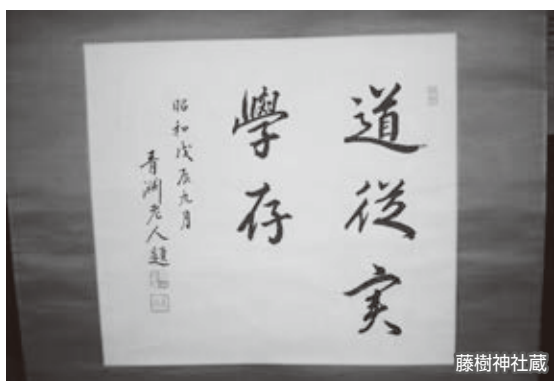 道從実
學存
昭和戊辰九月
青淵老人題
藤樹神社蔵